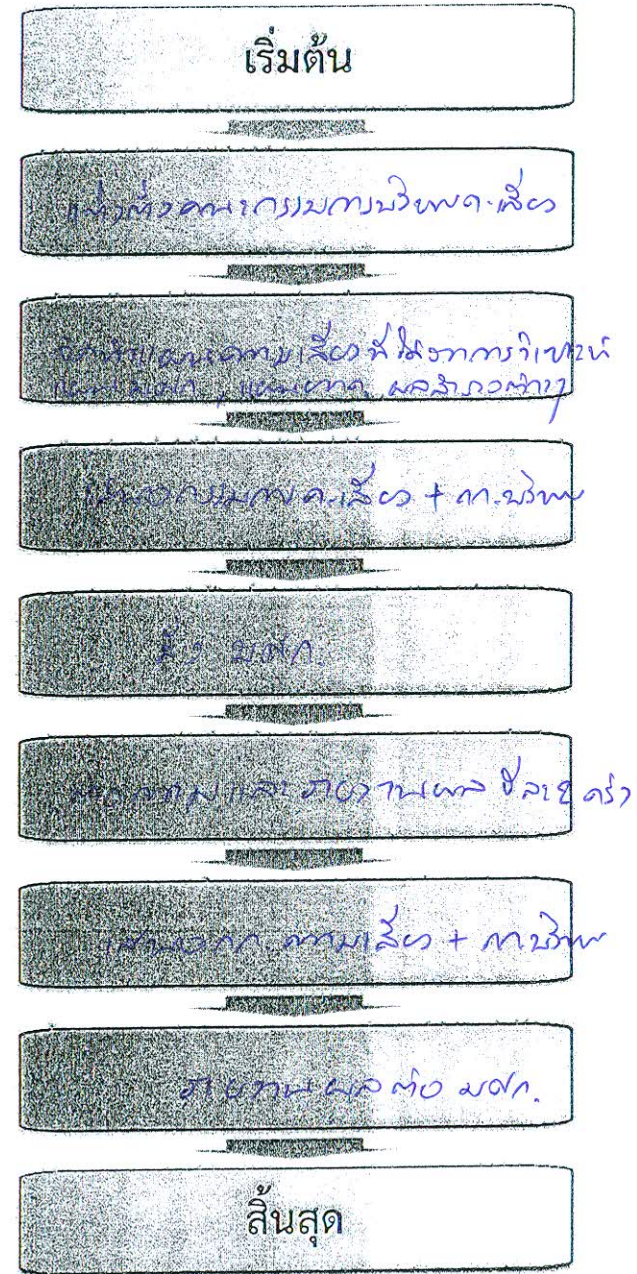 เริ่มต้น
แต่งตั้งคณะกรรมการบริหารค.เสี่ยง
จัดทำแผนความเสี่ยง ที่ได้จากการวิเคราะห์
แผน มศก. , ผลสำรวจต่างๆ
กรรมการ ค.เสี่ยง + กก.บริหาร
ส่ง มศก.
และ รายงานผล ปีละ 2 ครั้ง
เสนอ กก. ความเสี่ยง + กก.บริหาร
รายงานผล ต่อ มศก.
สิ้นสุด